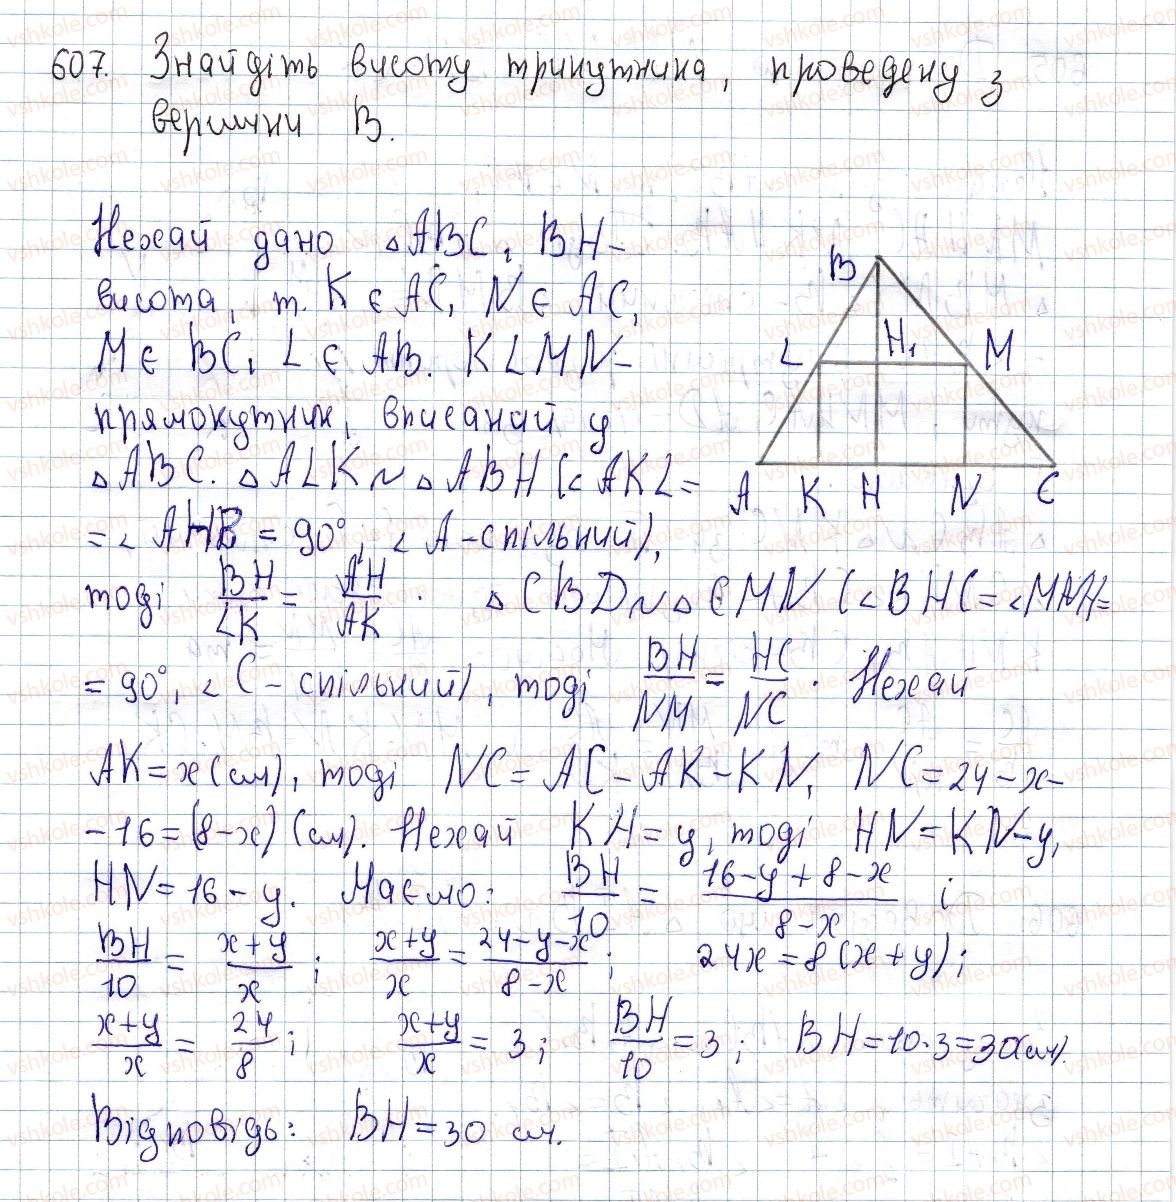 607. Знайдіть висоту трикутника, проведену з
вершини В.
Нехай дано △ABC, BH-
висота, т. K є AC, N є AC,
M є BC, L є AB. KLMN-
прямокутник, вписаний у
△ABC. △ALK ~ △ABH (∠AKL=
=∠AHB = 90°, ∠A-спільний),
тоді BH/LK = AH/AK. △CBD ~ △CMN (∠BHC=∠MNH=
= 90°, ∠C- спільний), тоді BH/NM = HC/NC. Нехай
AK=x(см), тоді NC=AC-AK-KN, NC=24-x-
-16=(8-x)(см). Нехай KH=y, тоді HN=KN-y,
HN=16-y. Маємо: BH/10 = 16-y+8-x/8-x і
BH/10 = x+y/x; x+y/x = 24-y-x/8-x; 24x=8(x+y);
x+y/x = 24/8; x+y/x = 3; BH/10 = 3; BH=10·3=30(см).
Відповідь: BH=30 см.
B
L H₁ M
A K H N C
vshkole.com